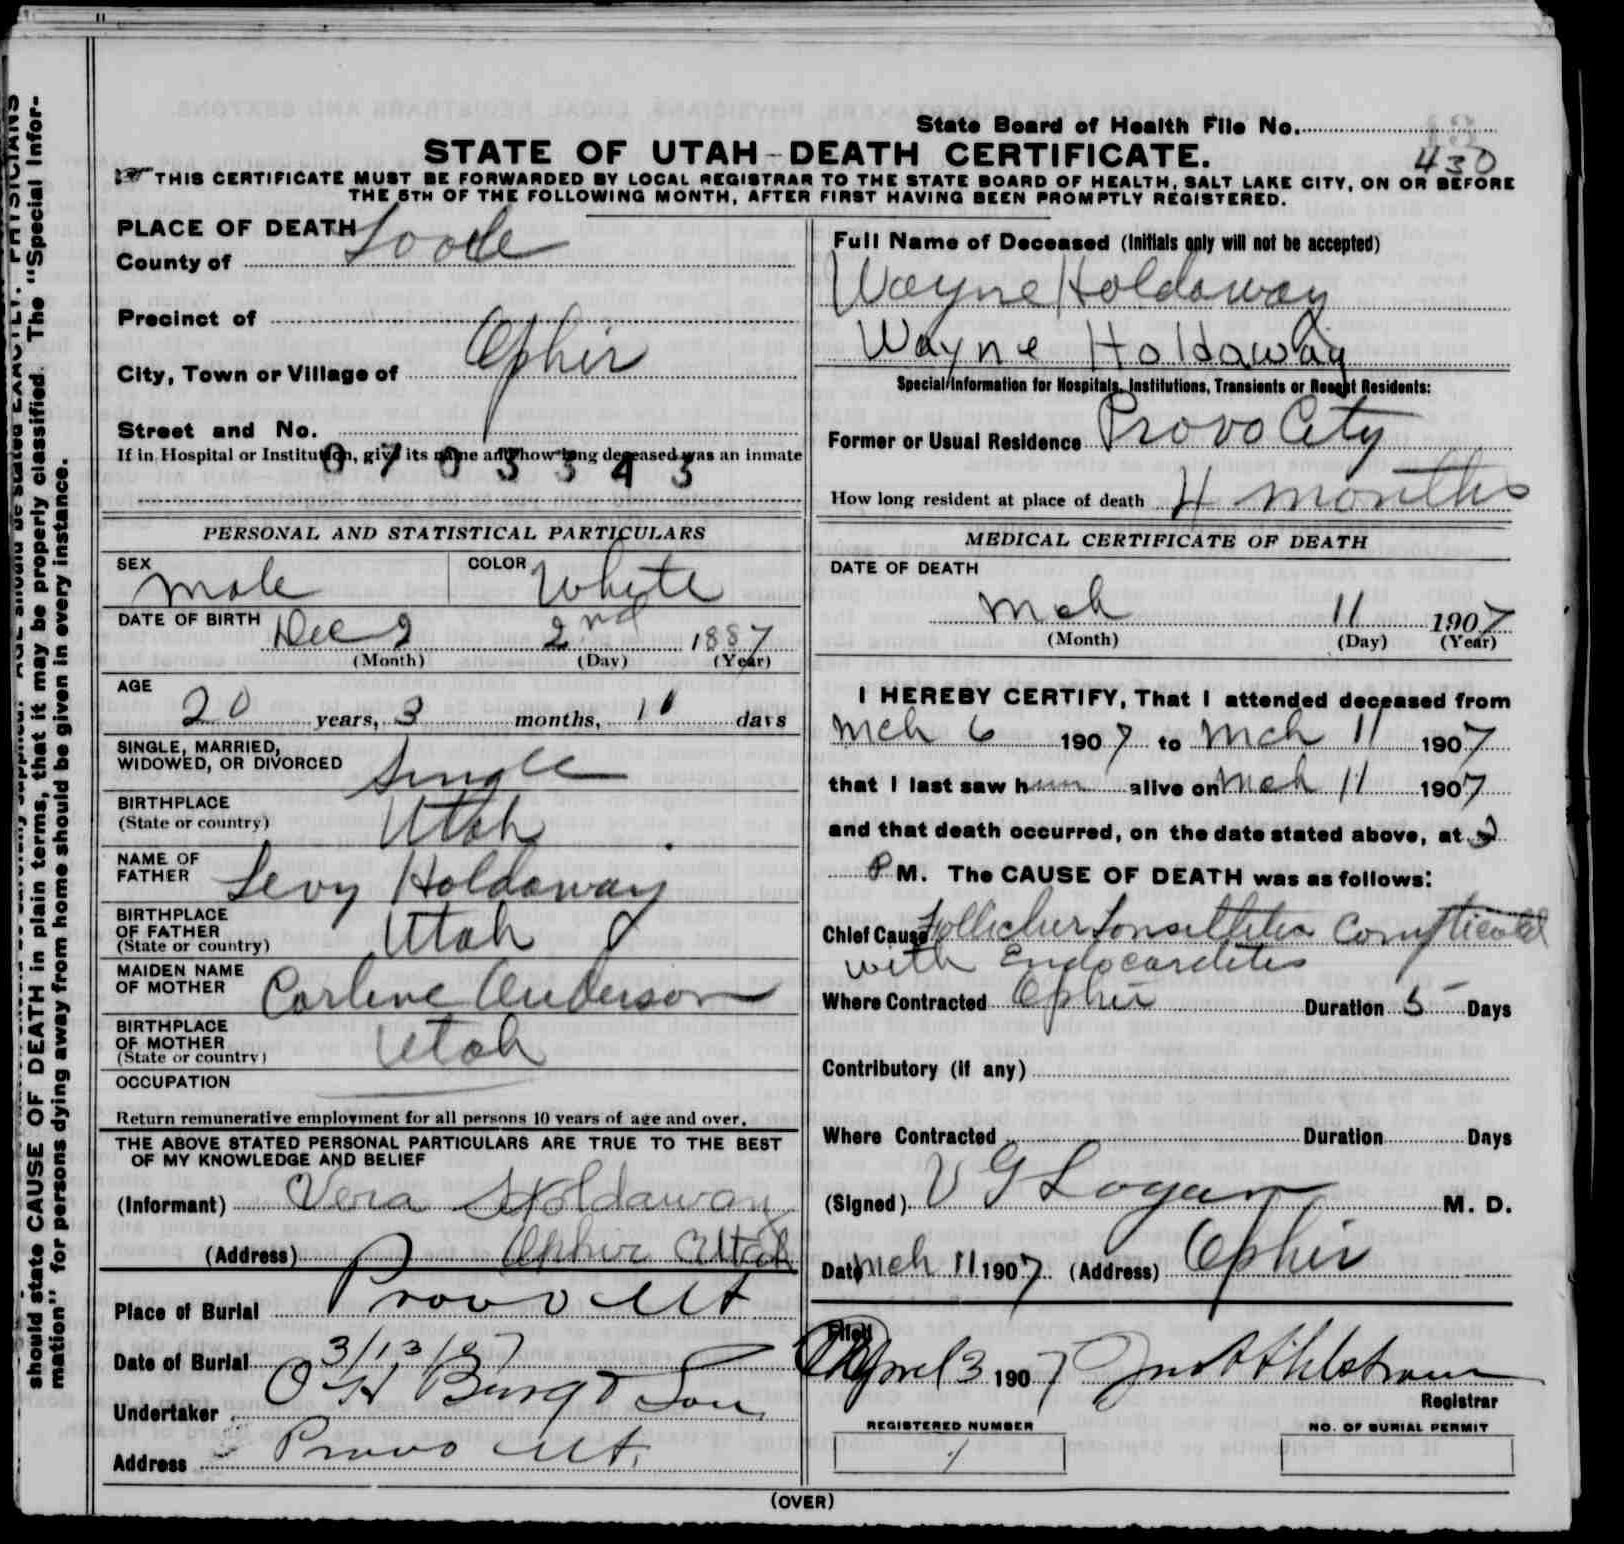 should state CAUSE OF DEATH in plain terms, that it may be properly classified. The "Special Infor-
mation" for persons dying away from home should be given in every instance.
State Board of Health File No.
430
STATE OF UTAH-DEATH CERTIFICATE.
THIS CERTIFICATE MUST BE FORWARDED BY LOCAL REGISTRAR TO THE STATE BOARD OF HEALTH, SALT LAKE CITY, ON OR BEFORE
THE 5TH OF THE FOLLOWING MONTH, AFTER FIRST HAVING BEEN PROMPTLY REGISTERED.
PLACE OF DEATH
County of Tooele
Precinct of
City, Town or Village of Ophir
Street and No.
If in Hospital or Institution, give its name and how long deceased was an inmate
0703343
PERSONAL AND STATISTICAL PARTICULARS
SEX male COLOR White
DATE OF BIRTH Dec 2 2nd 1887
(Month) (Day) (Year)
AGE
20 years, 3 months, 11 days
SINGLE, MARRIED,
WIDOWED, OR DIVORCED Single
BIRTHPLACE
(State or country) Utah
NAME OF
FATHER Levy Holdaway
BIRTHPLACE
OF FATHER
(State or country) Utah
MAIDEN NAME
OF MOTHER Carline Anderson
BIRTHPLACE
OF MOTHER
(State or country) Utah
OCCUPATION
Return remunerative employment for all persons 10 years of age and over.
THE ABOVE STATED PERSONAL PARTICULARS ARE TRUE TO THE BEST
OF MY KNOWLEDGE AND BELIEF
(Informant) Vera Holdaway
(Address) Ophir Utah
Place of Burial Provo Ut
Date of Burial 3/13/07
Undertaker O H Berg & Son
Address Provo Ut.
Full Name of Deceased (Initials only will not be accepted)
Wayne Holdaway
Wayne Holdaway
Special Information for Hospitals, Institutions, Transients or Recent Residents:
Former or Usual Residence Provo City
How long resident at place of death 4 months
MEDICAL CERTIFICATE OF DEATH
DATE OF DEATH
Mch 11 1907
(Month) (Day) (Year)
I HEREBY CERTIFY, That I attended deceased from
Mch 6 1907 to Mch 11 1907
that I last saw him alive on Mch 11 1907
and that death occurred, on the date stated above, at 2
P M. The CAUSE OF DEATH was as follows:
Chief Cause Tonsillitis Complicated
with Endocarditis
Where Contracted Ophir Duration 5 Days
Contributory (if any)
Where Contracted Duration Days
(Signed) V G Logan M. D.
Date Mch 11 1907 (Address) Ophir
Filed April 3 1907 Jno A Ahlstrom
Registrar
REGISTERED NUMBER NO. OF BURIAL PERMIT
1
(OVER)